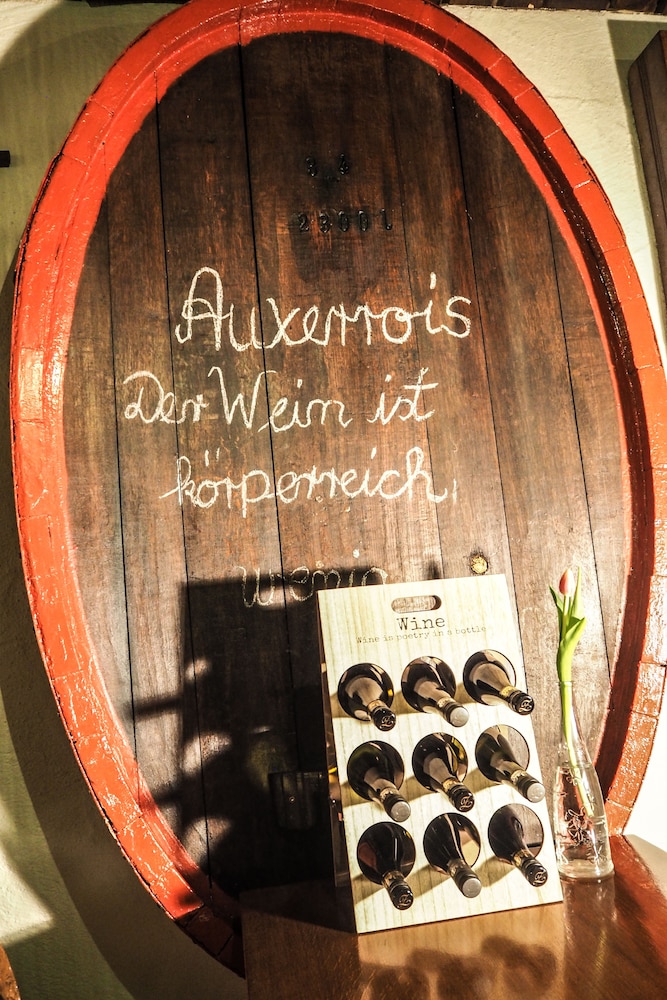 2300L
Auxerrois
Der Wein ist
körperreich,
wenig
Wine
Wine is poetry in a bottle